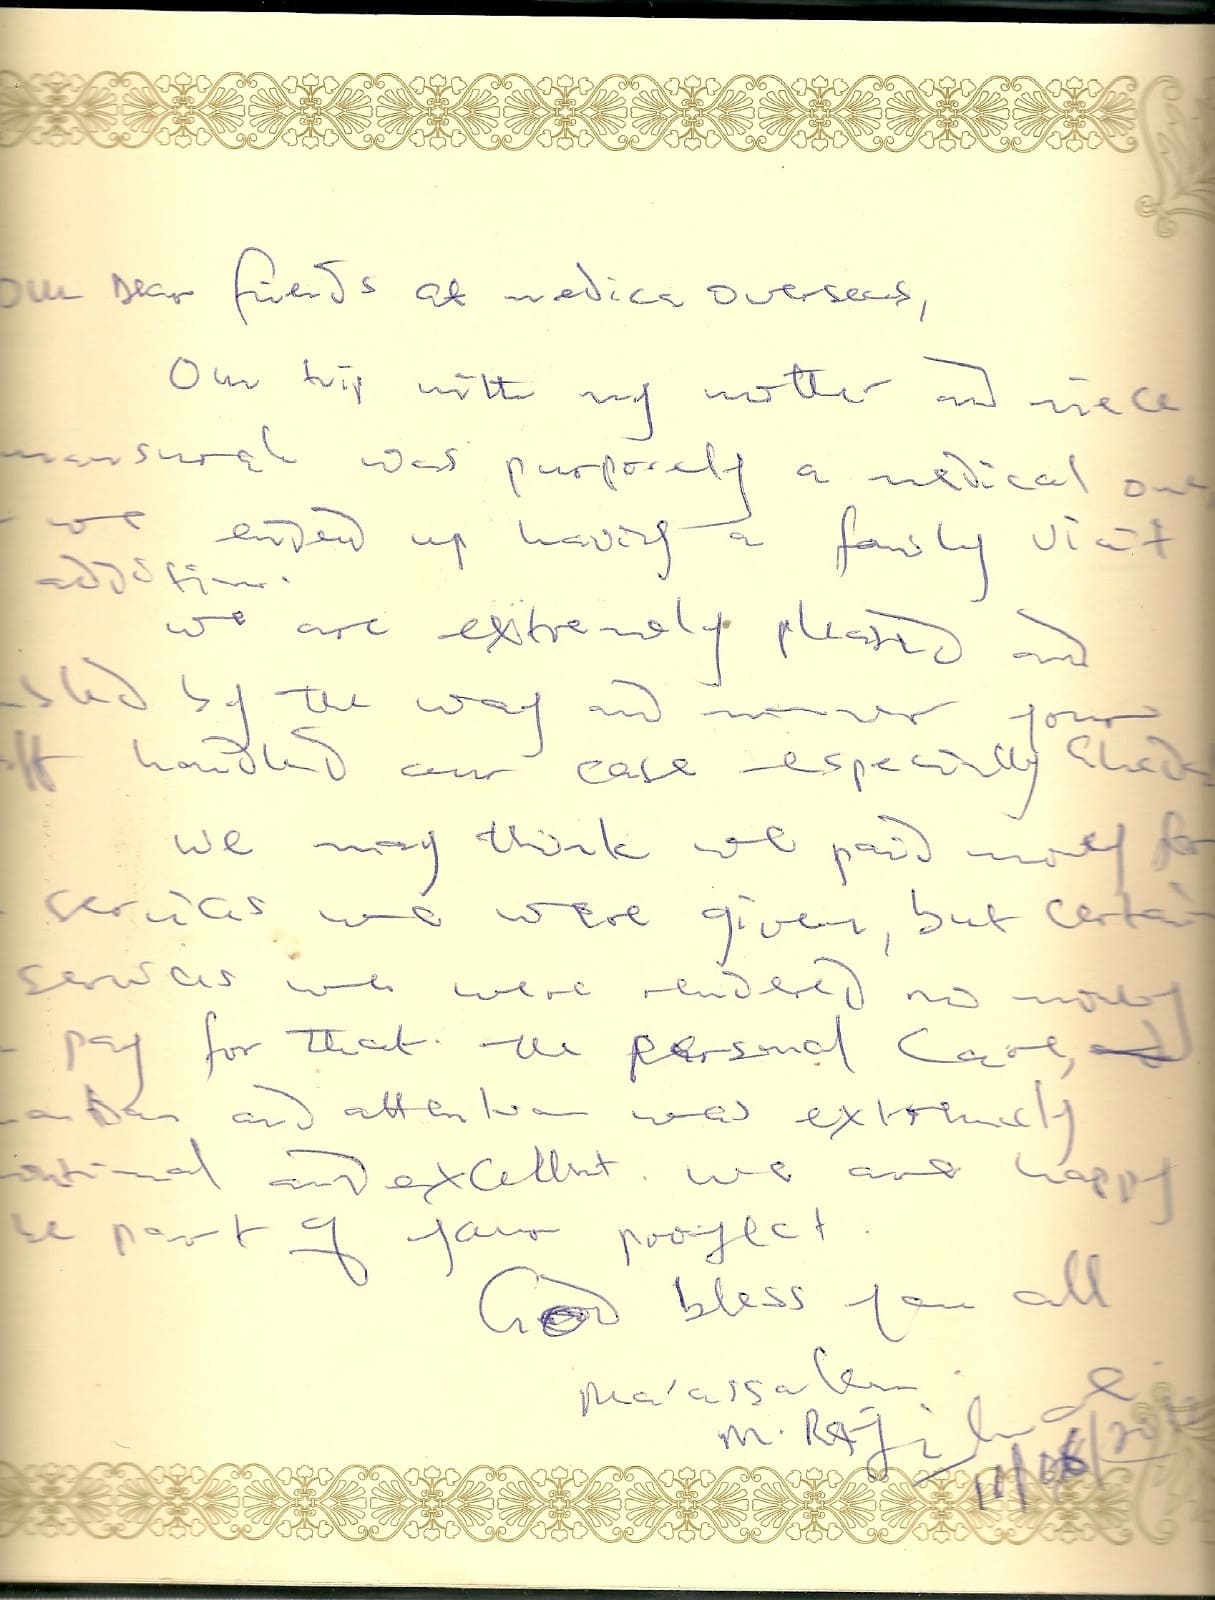 Our Dear friends at medica overseas,
Our trip with my mother and niece
mansurah was purposely a medical one,
we ended up having a family visit
addition.
we are extremely pleased and
by the way and manner your
handled our case especially
we may think we paid money for
services we were given, but certain
services we were rendered no money
pay for that. The personal Care, and
and attention was extremely
and excellent. we are happy
be part of your proyect.
God bless you all
Ma'assalam
M. RAJI